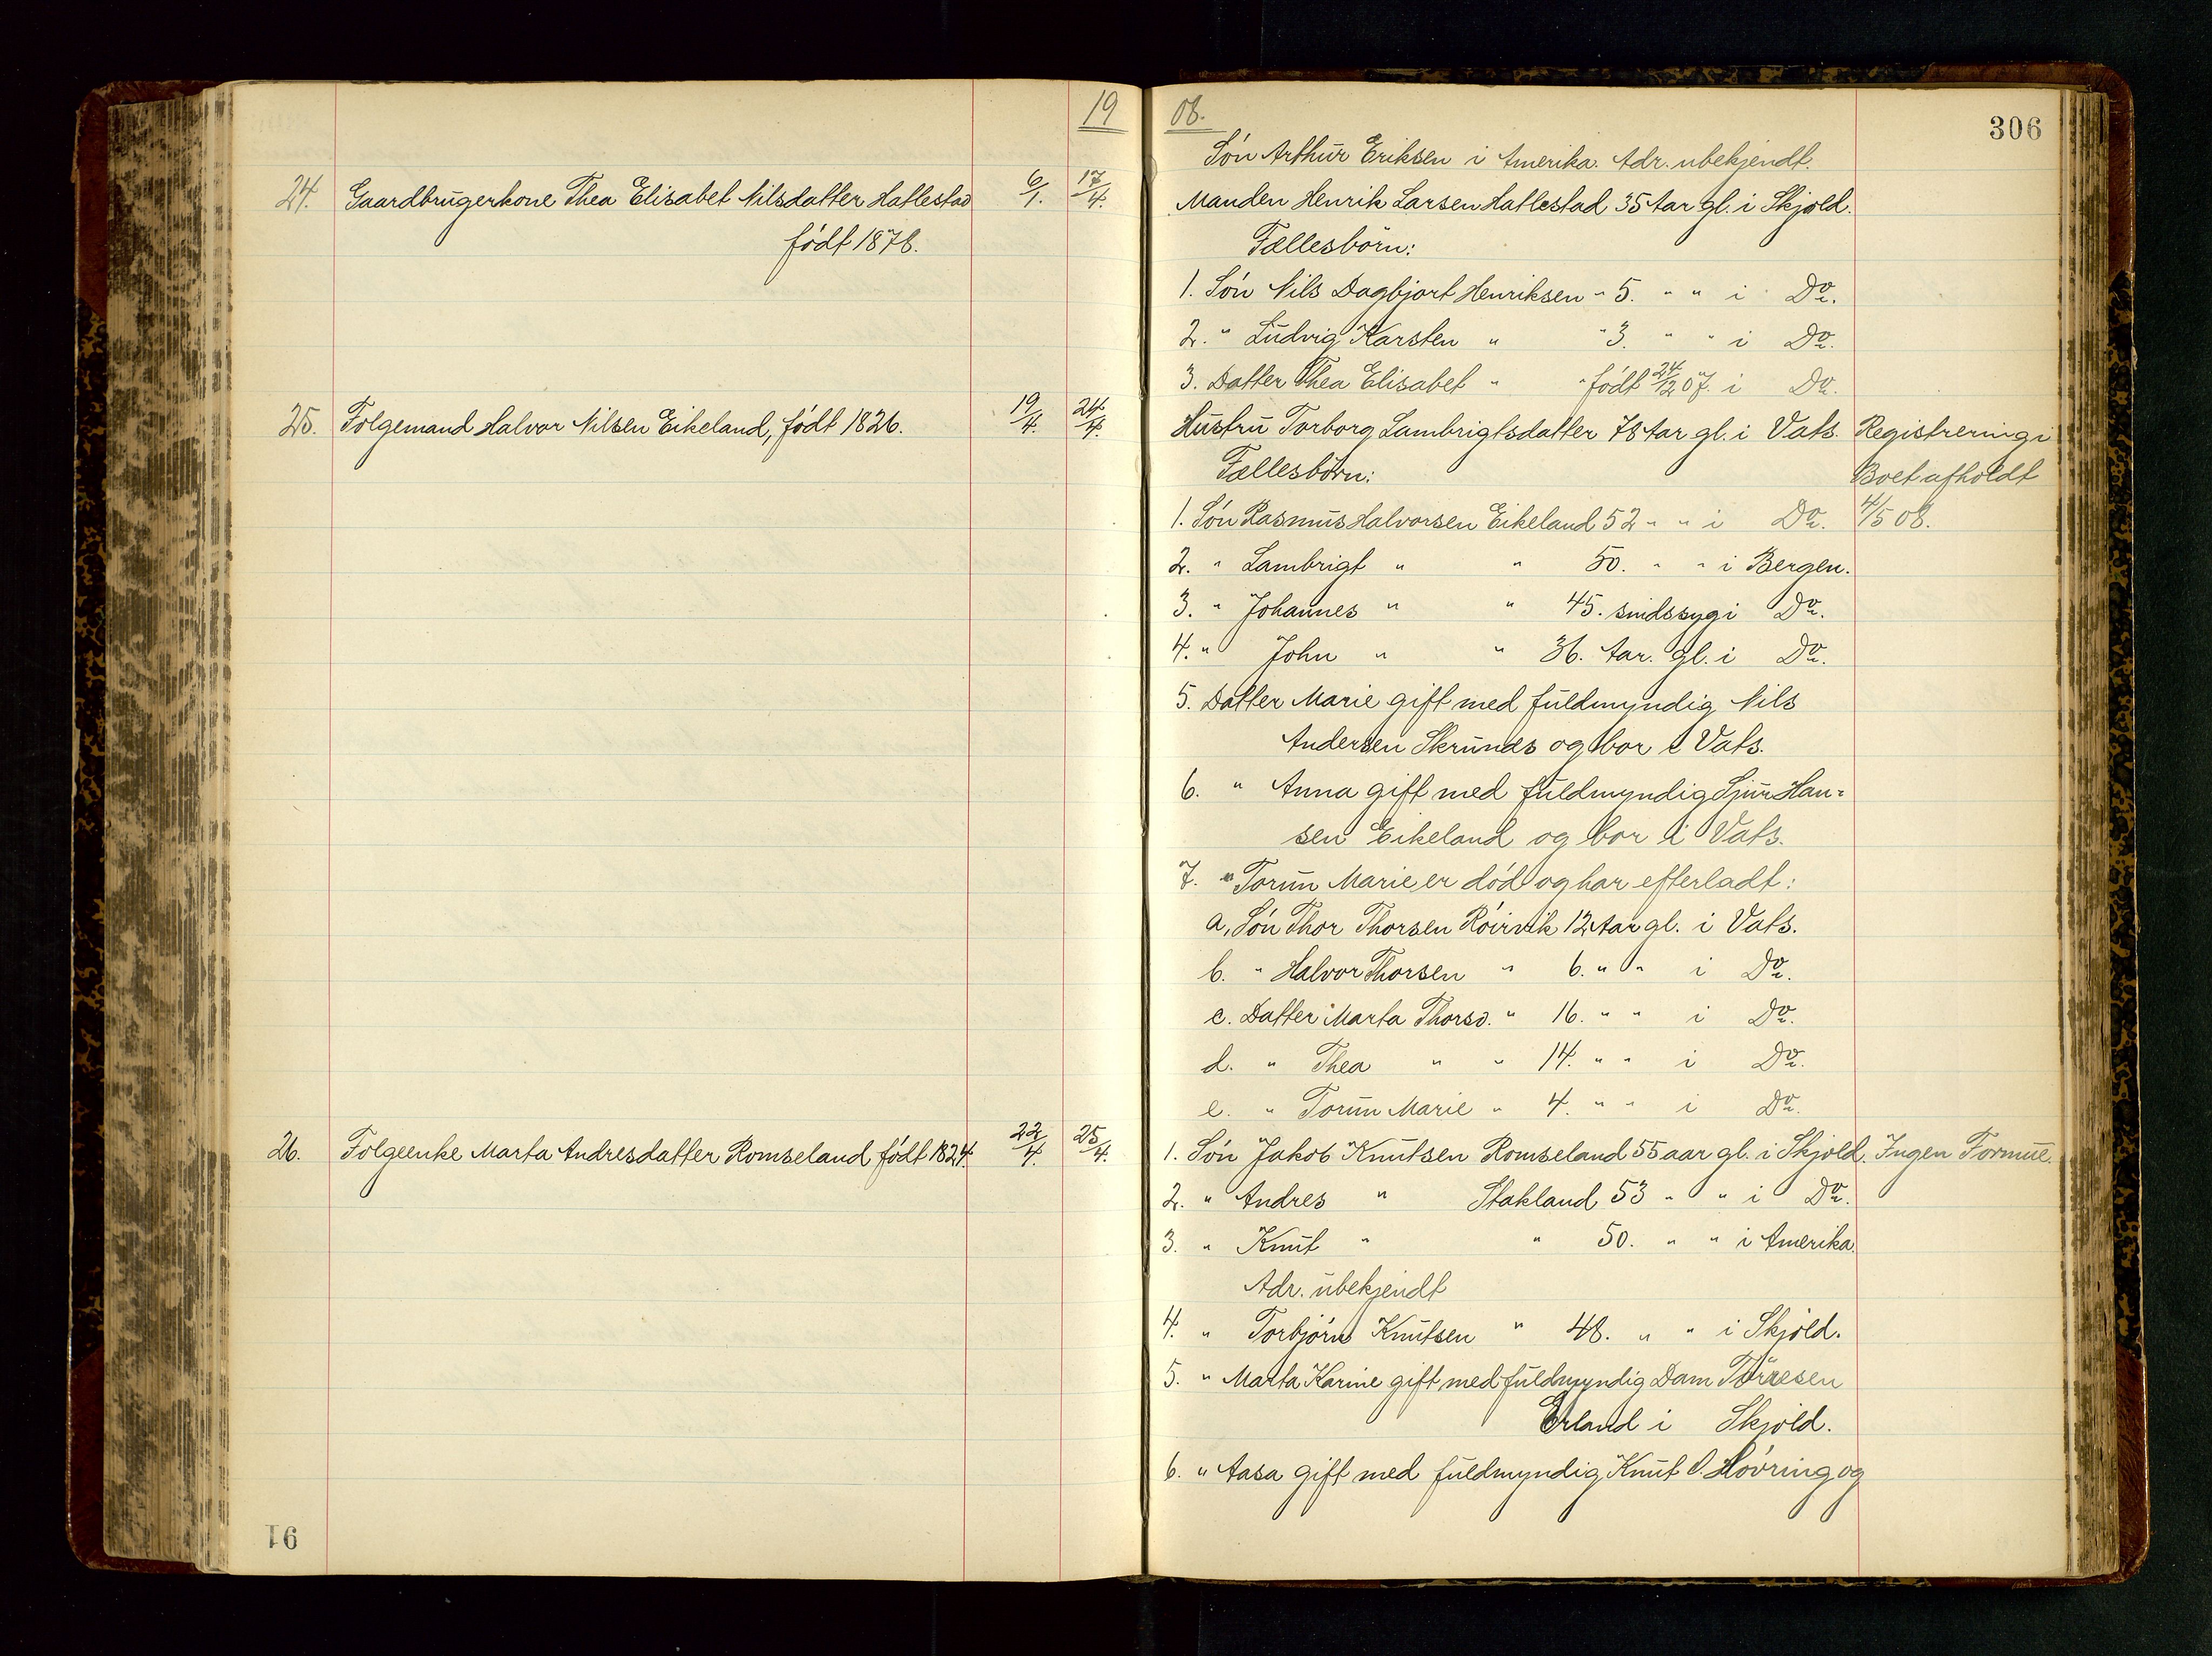 19 08.
306
Søn Arthur Eriksen i Amerika. Adr. ubekjendt.
24. Gaardbrugerkone Thea Elisabet Nilsdatter Hatlestad 6/1. 17/4. Manden Henrik Larsen Hatlestad 35 Aar gl. i Skjold.
født 1878. Fællesbörn:
1. Søn Nils Dagbjort Henriksen " 5. " " i Do.
2. " Ludvig Karsten " " 3. " " i Do.
3. Datter Thea Elisabet " " født 24/12 07. i Do.
25. Folgemand Halvor Nilsen Eikeland, født 1826. 19/4. 24/4. Hustru Torborg Lambrigtsdatter 78 Aar gl. i Vats. Registrering i
Fællesbörn: Boet afholdt
1. Søn Rasmus Halvorsen Eikeland 52 " " i Do. 4/5 08.
2. " Lambrigt " " 50. " " i Bergen.
3. " Johannes " " 45. sindssyg i Do.
4. " John " " 36. Aar. gl. i Do.
5. Datter Marie gift med fuldmyndig Nils
Andersen Skrunds og bor i Vats.
6. " Anna gift med fuldmyndig Sjur Han=
sen Eikeland og bor i Vats.
7. " Torun Marie er død og har efterladt:
a, Søn Thor Thorsen Røirvik 12 Aar gl. i Vats.
b. " Halvor Thorsen " 6. " " i Do.
c. Datter Marta Thorsd. " 16. " " i Do.
d. " Thea " " 14. " " i Do.
e. " Torun Marie " 4. " " i Do.
26. Folgeenke Marta Andresdatter Romseland født 1824. 22/4. 25/4. 1. Søn Jakob Knutsen Romseland 55 aar gl. i Skjold. Ingen Formue.
2. " Andres " Stakland 53 " " i Do.
3. " Knut " " 50. " " i Amerika.
Adr. ubekjendt
4. " Torbjørn Knutsen " 48. " " i Skjold.
5. " Marta Karine gift med fuldmyndig Dam Tørresen
Erland i Skjold.
6. " Aasa gift med fuldmyndig Knut O. Høvring og
91